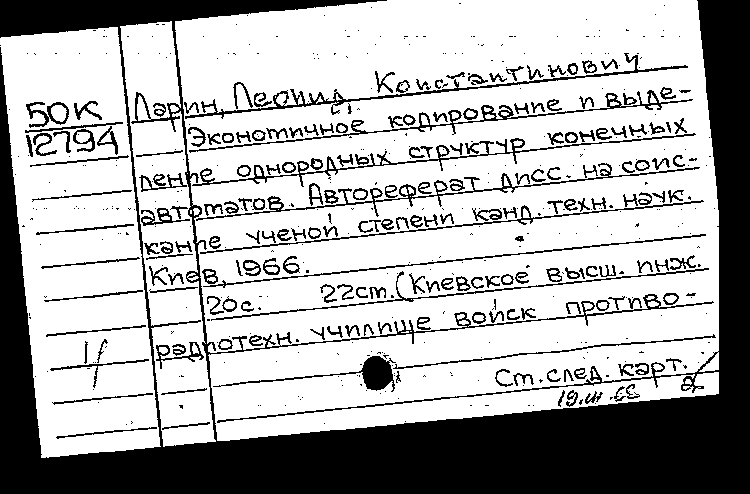 Ларин, Леонид Константинович
50К
12794
Экономичное кодирование и выде-
ление однородных структур конечных
автоматов. Автореферат дисс. на соис-
кание ученой степени канд. техн. наук.
Киев, 1966.
20с. 22ст. (Киевское высш. инж.
радиотехн. училище войск противо-
Ст. след. карт.